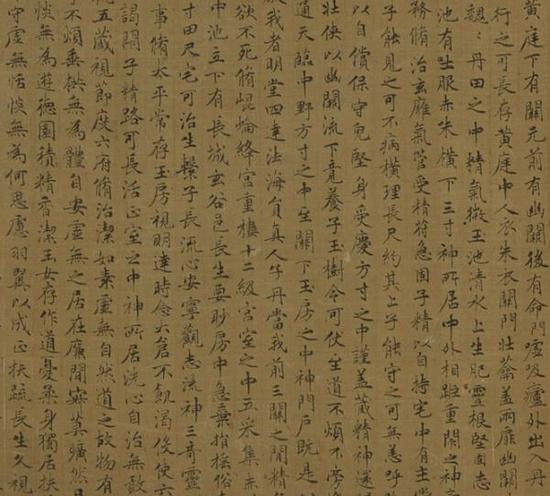 黃庭下有關元前有幽闕後有命門噓吸廬外出入丹
行之可長存黃庭中人衣朱衣關門壯蘥蓋兩扉幽闕
巍丹田之中精氣微玉池清水上生肥靈根堅固志
池有士服赤朱橫下三寸神所居中外相距重閉之神
務脩治玄廱氣管受精符急固子精以自持宅中有士常
子能見之可不病橫理長尺約其上子能守之可無恙呼
以自償保守皃堅身受慶方寸之中謹蓋藏精神還
壯俠以幽闕流下竟養子玉樹令可仗至道不煩不旁
通天臨中野方寸之中至關下玉房之中神門戶既是
我者明堂四達法海員真人子丹當我前三關之間精
欲不死脩崐崘絳宮重樓十二級宮室之中五采集赤
中池立下有長城玄谷邑長生要眇房中急棄捐搖俗
寸田尺宅可治生繫子長流心安寧觀志流神三奇靈
事脩太平常存玉房視明達時念大倉不飢渴役使六
謁閉子精路可長活正室之中神所居洗心自治無敢
五藏視節度六府脩治潔如素虛無自然道之故物有
不煩垂拱無為體自安虛無之居在廉間寂莫曠然
惔無為遊德園積精香潔玉女存作道憂柔身獨居扶
守虛無恬惔無為何思慮羽翼以成正扶疏長生久視